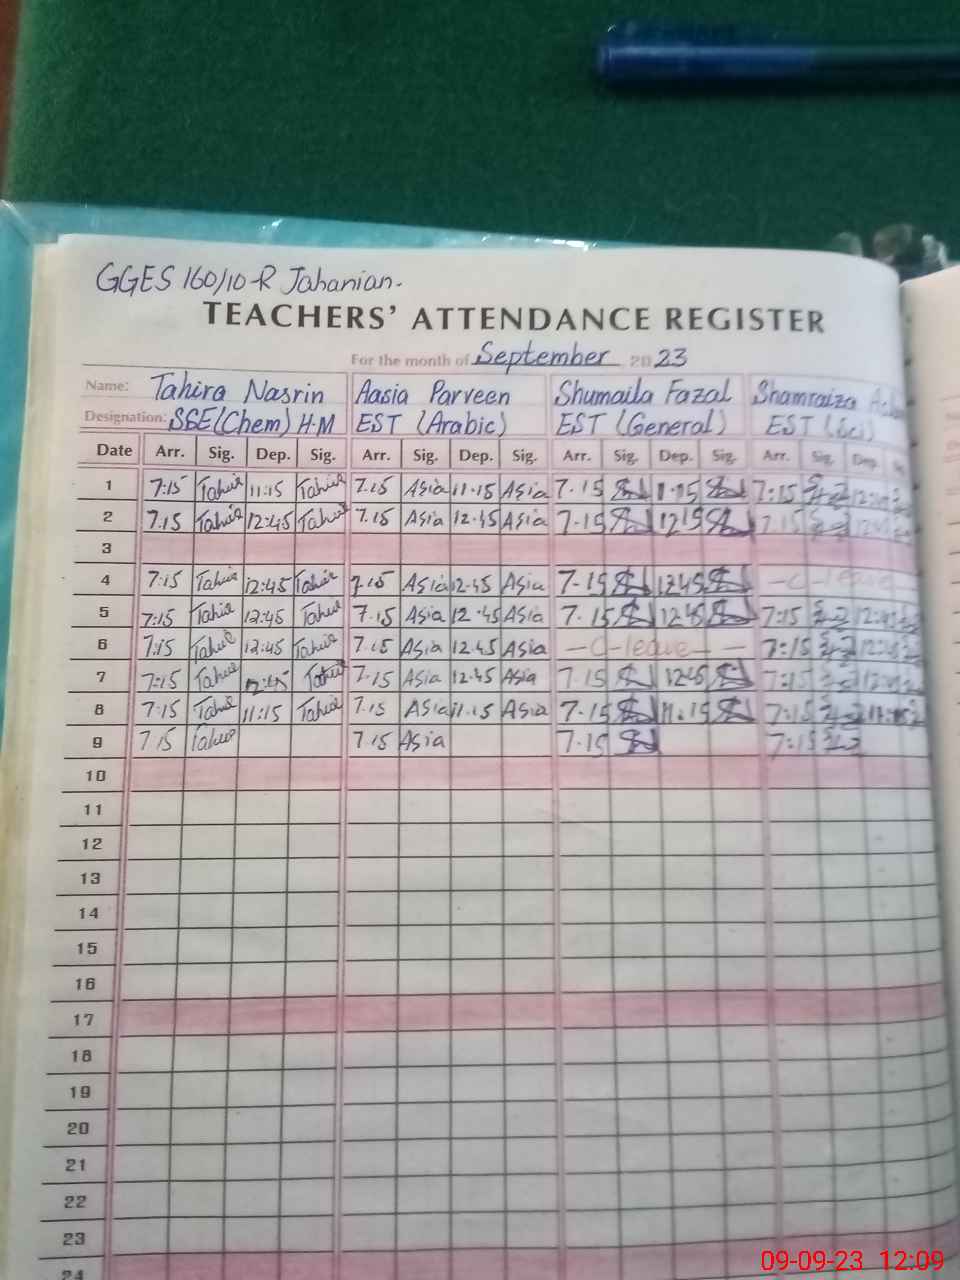 GGES 160/10-R Jahanian.
TEACHERS' ATTENDANCE REGISTER
For the month of September 2023
Name: Tahira Nasrin Aasia Parveen Shumaila Fazal Shamraiza
Designation: SSE(Chem) H.M EST (Arabic) EST (General) EST (Sci)
Date Arr. Sig. Dep. Sig. Arr. Sig. Dep. Sig. Arr. Sig. Dep. Sig. Arr. Sig. Dep.
1 7:15 Tahir 11:15 Tahir 7.15 Asia 11.15 Asia 7.15 11.15 7:15
2 7.15 Tahir 12:45 Tahir 7.15 Asia 12.45 Asia 7.15 1215 7:15
3
4 7:15 Tahir 12:45 Tahir 7.15 Asia 12.45 Asia 7.15 1245 -C-leave-
5 7:15 Tahir 12:45 Tahir 7.15 Asia 12.45 Asia 7.15 1245 7:15
6 7:15 Tahir 12:45 Tahir 7.15 Asia 12.45 Asia -C-leave- - 7:15
7 7:15 Tahir 12:45 Tahir 7.15 Asia 12.45 Asia 7.15 1245 7:15
8 7:15 Tahir 11:15 Tahir 7.15 Asia 11.15 Asia 7.15 11.15 7:15
9 7:15 Tahir 7.15 Asia 7.15 7:15
10
11
12
13
14
15
16
17
18
19
20
21
22
23
24
09-09-23 12:09